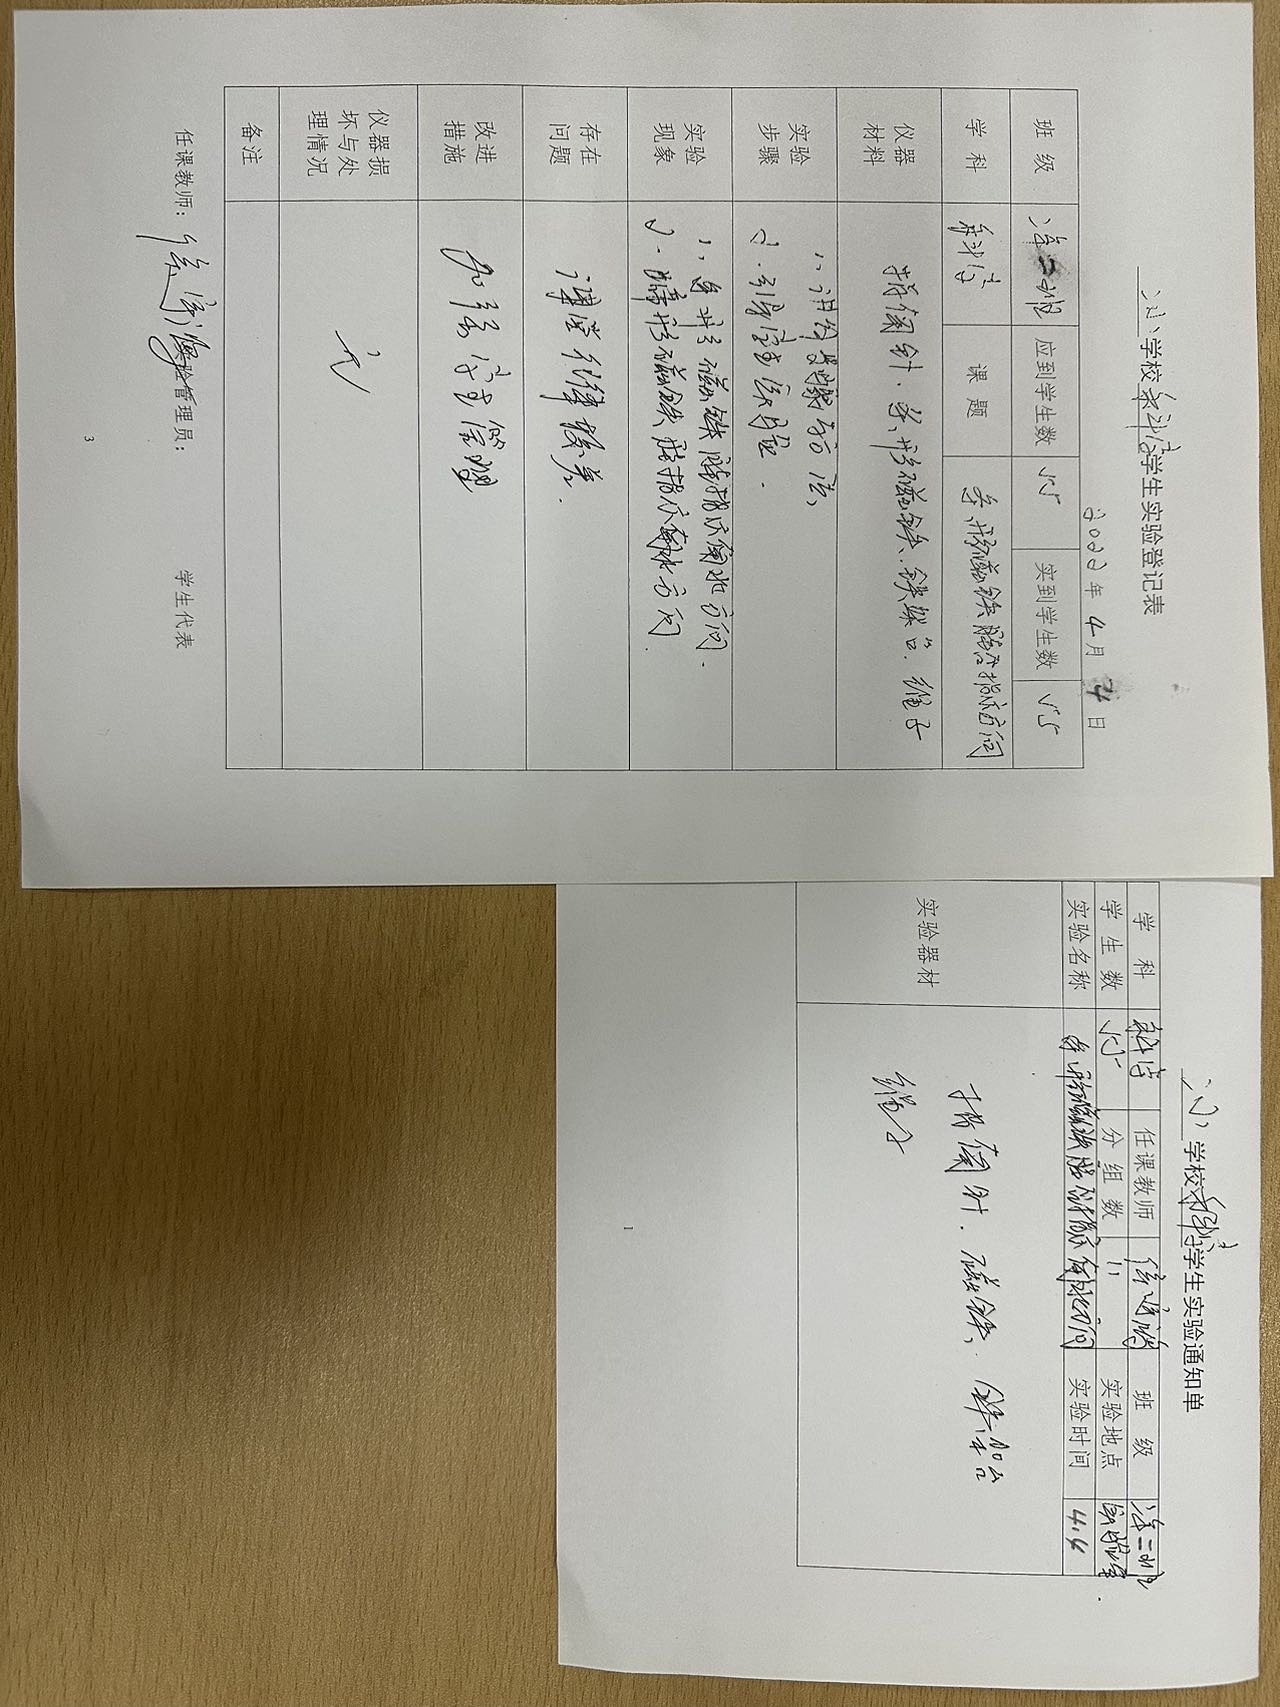 学校科学学生实验登记表
2022年4月4日
班 级 二班 应到学生数 55 实到学生数 55
学 科 科学 课 题 条形磁铁能否指示方向
仪器材料 指南针、条形磁铁、铁架台、绳子
实验步骤 1、讲解步骤与方法,
2、引导学生实验.
实验现象 1、条形磁铁能指示南北方向.
2、蹄形磁铁能指示南北方向.
存在问题 课堂纪律较差.
改进措施 加强学生管理
仪器损坏与处理情况 无
备注
任课教师: 实验管理员: 学生代表
3
学校科学学生实验通知单
学 科 科学 任课教师 班 级 二班
学 生 数 55 分 组 数 11 实验地点 实验室
实验名称 条形磁铁能指示南北方向 实验时间 4.4
实验器材 指南针、磁铁、铁架台
绳子
1